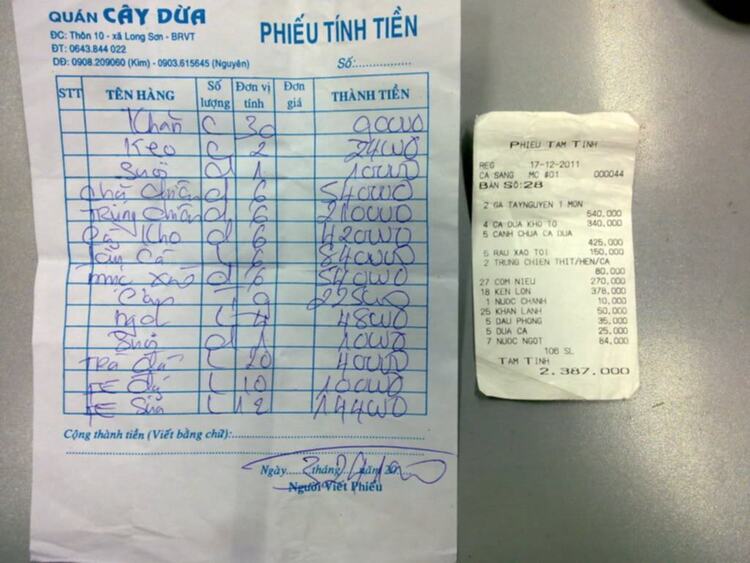 QUÁN CÂY DỪA
ĐC: Thôn 10 - xã Long Sơn - BRVT
ĐT: 0643.844 022
DĐ: 0908.209060 (Kim) - 0903.615645 (Nguyên)
PHIẾU TÍNH TIỀN
Số:
STT TÊN HÀNG Số lượng Đơn vị tính Đơn giá THÀNH TIỀN
Khăn C 30 90000
Kẹo C 2 24000
Suối d 1 10000
Chả Chiên d 6 540000
Trứng Chiên d 6 210000
Cá Kho d 6 420000
Lẩu Cá L 6 840000
d 6 540000
9 225000
Ngọt L 4 48000
Suối d 1 10000
Trà đá L 20 40000
L 10 100000
L 12 144000
Cộng thành tiền (Viết bằng chữ):
Ngày tháng năm 20
Người Viết Phiếu
PHIEU TAM TINH
REG 17-12-2011
CA SANG MC #01 000044
BAN SO:28
2 GA TAYNGUYEN 1 MON
540.000
4 CA DUA KHO TO 340.000
5 CANH CHUA CA DUA
425.000
5 RAU XAO TOI 150.000
2 TRUNG CHIEN THIT/HEN/CA
80.000
27 COM NIEU 270.000
18 KEN LON 378.000
1 NUOC CHANH 10.000
25 KHAN LANH 50.000
5 DAU PHONG 35.000
5 DUA CA 25.000
7 NUOC NGOT 84.000
106 SL
TAM TINH
2.387.000